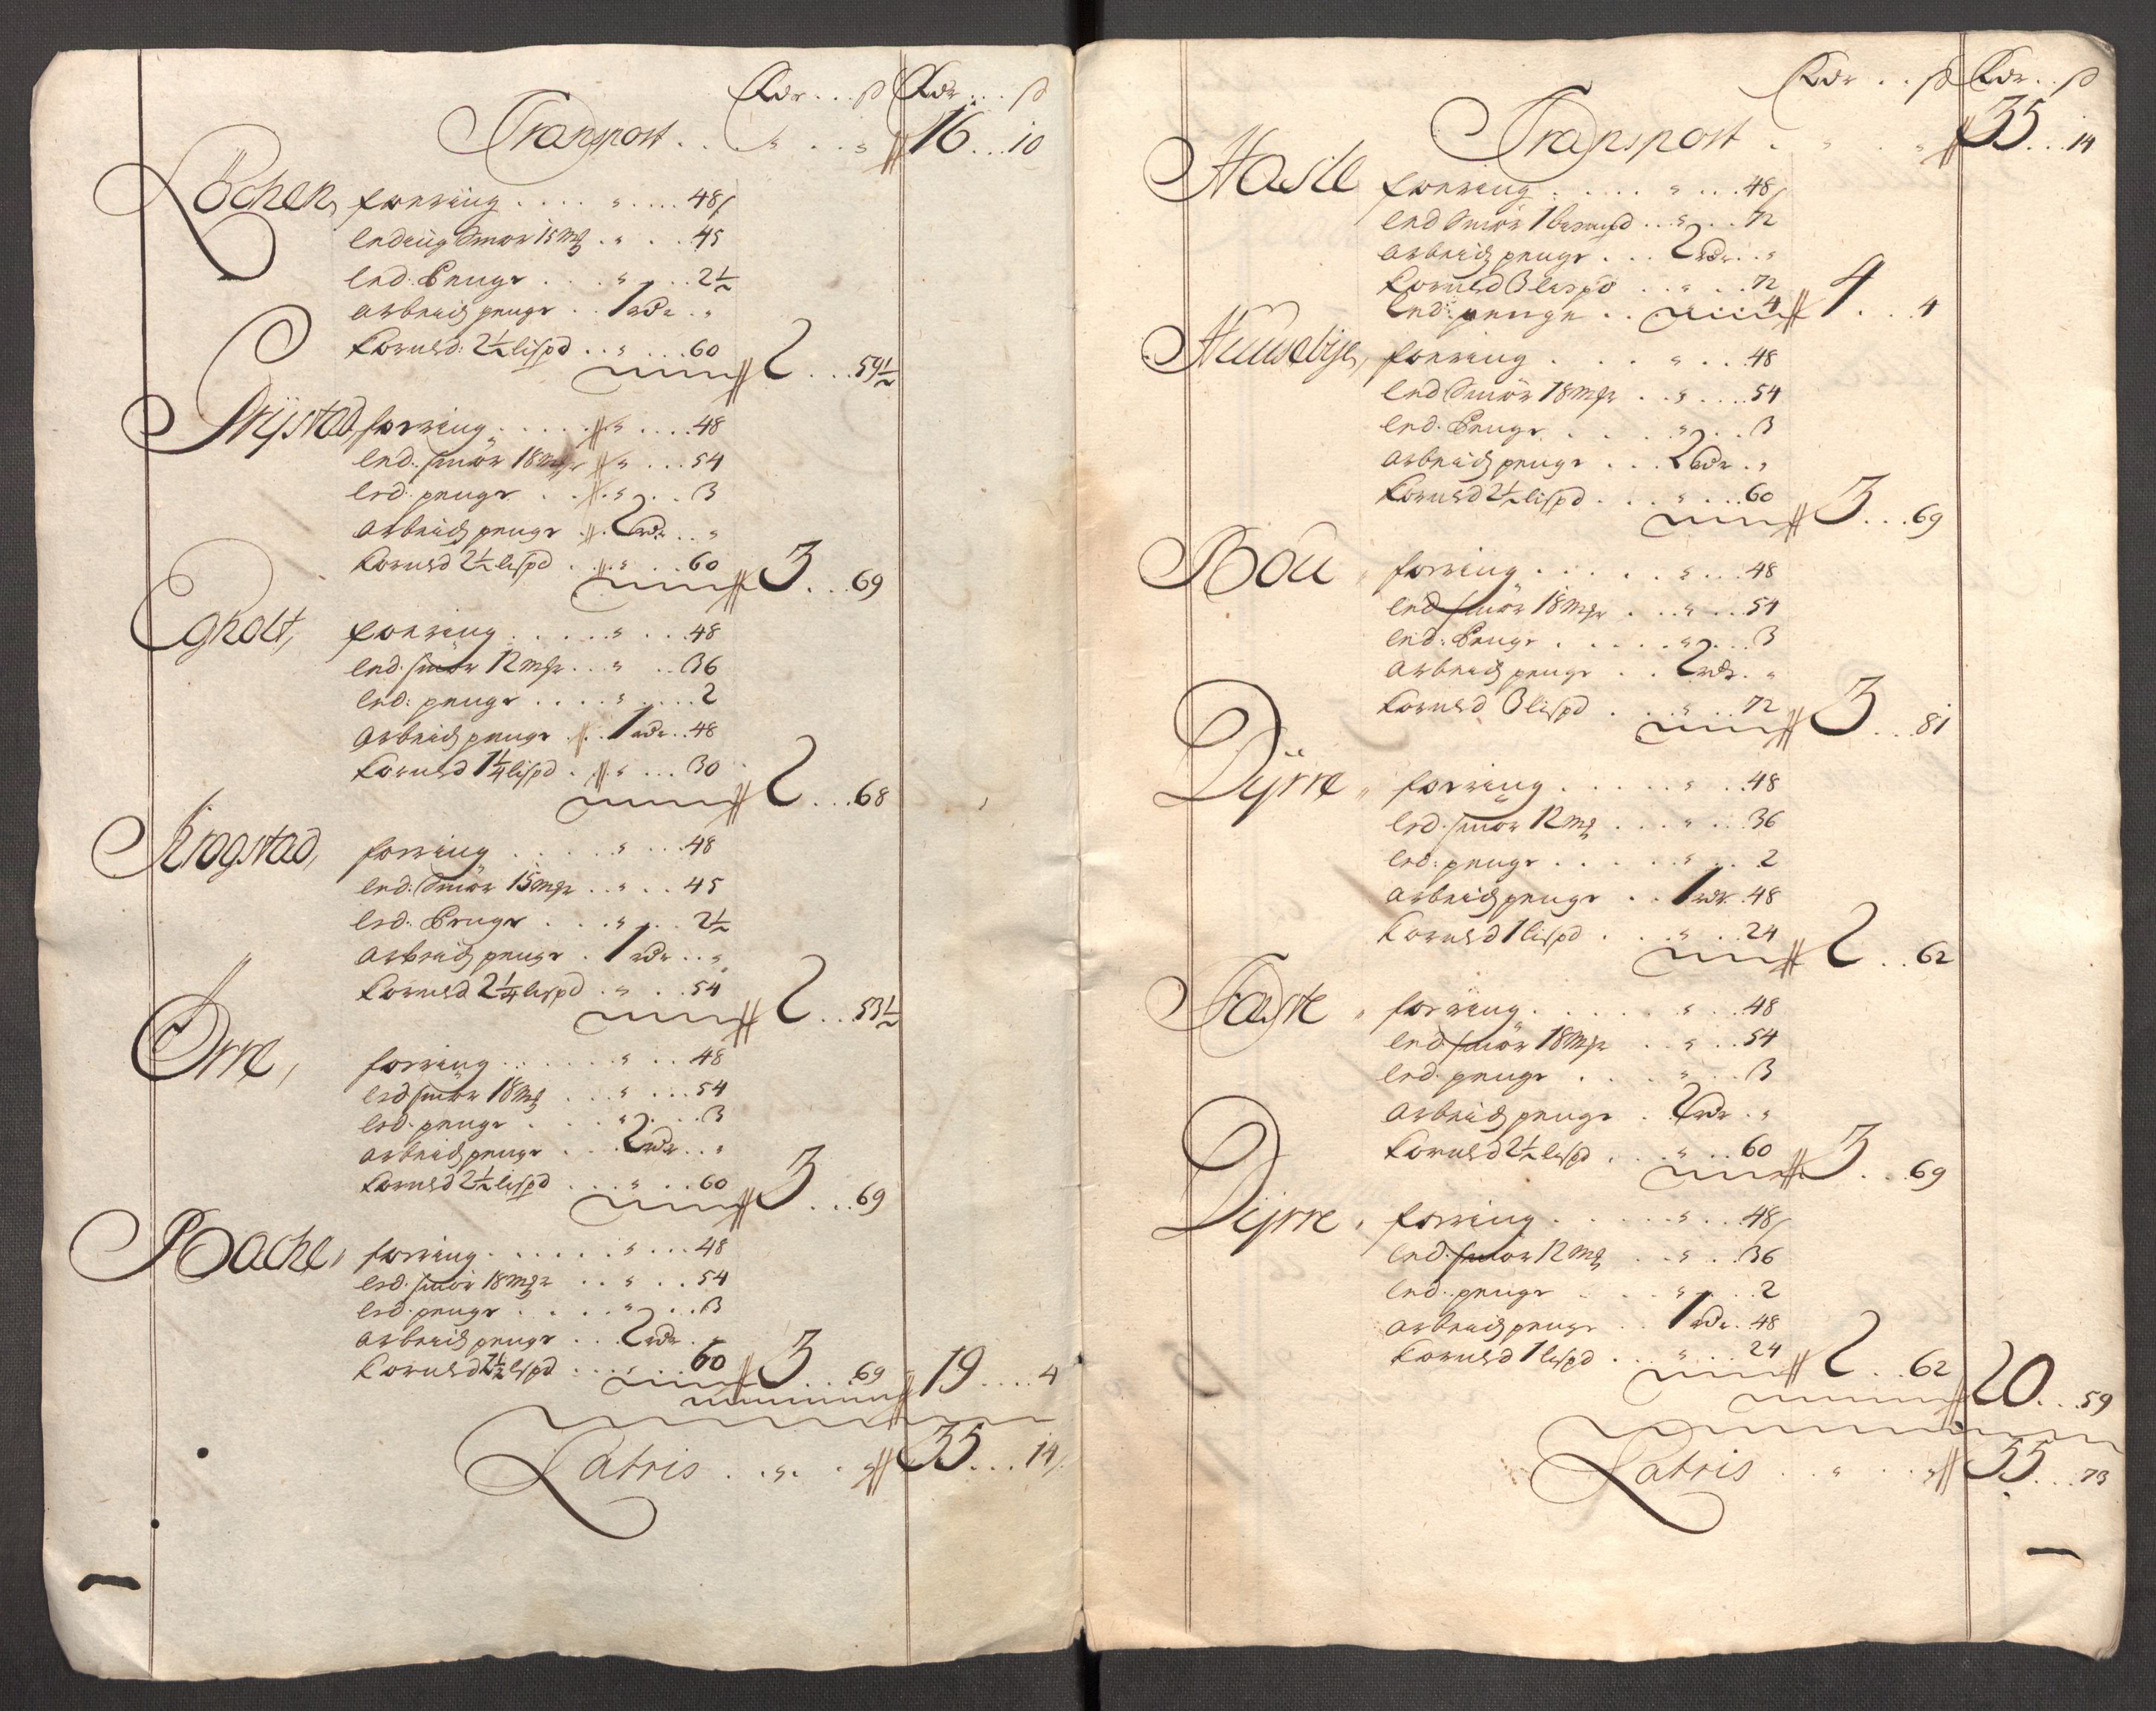 Rdr . . . ß Rdr . . . ß
Transport . . . " . . " 16 . . . 10
Löchen, forring . . . . " . . . . 48
Leding Smør 15 mß . " . . 45
Led. Penge . . . " . . . 2½
Arbeidz penge . . 1 rdr . "
Kornld: 2½ lispd . . " . . . 60 2 . . . 59½
Nystad, forring . . . . . " . . . . 48
Led. smör 18 mr " . . . 54
Led. penge . . . " . . . 3
Arbeidz penge . 2 rdr . . "
Kornld 2½ lispd . . " . . 60 3 . . . 69
Egholt, forring . . . . . " . . . 48
Led. smör 12 mr . . . " . . 36
Led: penge . . . . " . . . . 2
Arbeidz penge . . 1 rdr . . 48
Kornld 1¼ lispd . . " . . . 30 2 . . . 68
Krogstad, forring . . . . . " . . . 48
Led. Smör 15 mr . . " . . 45
Led. Penge . . . " . . . 2½
Arbeidz penge . 1 rdr . . "
Kornld 2¼ lispd . " . . 54 2 . . 53½
Orre, forring . . . . . . " . . 48
Led smör 18 mß . . . " . . . 54
Led. penge . . . . " . . . 3
Arbeidz penge . . . 2 rdr . . "
Kornld 2½ lispd . . . " . . 60 3 . . . 69
Bache, forring . . . . . . " . . . 48
Led. smör 18 mr . . " . . 54
Led. penge . . . . " . . . 3
Arbeidz penge . . 2 rdr . "
Kornld 2½ lispd . . . " . . . 60 3 . . . 69 19 . . . . 4
Latris . . " . . " 35 . . . 14
Rdr . . ß Rdr . . ß
Transport . " . " 35 . . . 14
Hasle forring . . . . . " . . . 48
Led Smör 1 bismpd . . . " . . 72
Arbeidz penge . . . 2 rdr . . "
Kornld 3 lispd . . " . . 72
Led: penge . . . . 4 4 . . . 4
Huusebye, forring . . . . " . . . 48
Led Smör 18 mr . . " . . . . 54
Led. Penge . . . . " . . . 3
Arbeidz penge . . . 2 rdr . "
Kornld 2½ lispd . . . " . . . 60 3 . . . 69
Böu " forring . . . . . " . . . 48
Led smör 18 mr . . . " . . . 54
Led: Penge . . . . . " . . . 3
Arbeidz penge . . 2 rdr . "
Kornld 3 lispd . . " . . 72 3 . . . 81
Dyrre " forring . . . . . " . . 48
Led. smör 12 mß . . . " . . . 36
Led: penge . . . . . " . . 2
Arbeidz penge . . 1 rdr . 48
Kornld 1 lispd . . . " . . 24 2 . . 62
Faste " forring . . . . . . " . . 48
Led smör 18 mr . . " . . 54
Led. penge . . . . " . . 3
Arbeidz penge . 2 rdr . "
Kornld 2½ lispd . . " . . 60 3 . . . 69
Dyrre, forring . . . . . " . . . 48
Led. smör 12 mß . . " . . 36
Led. penge . . . " . . . 2
Arbeidz penge . . 1 rdr . 48
Kornld 1 lispd . . . " . . . 24 2 . . . 62 20 . . . 59
Latris . . " . . " 55 . . . 73